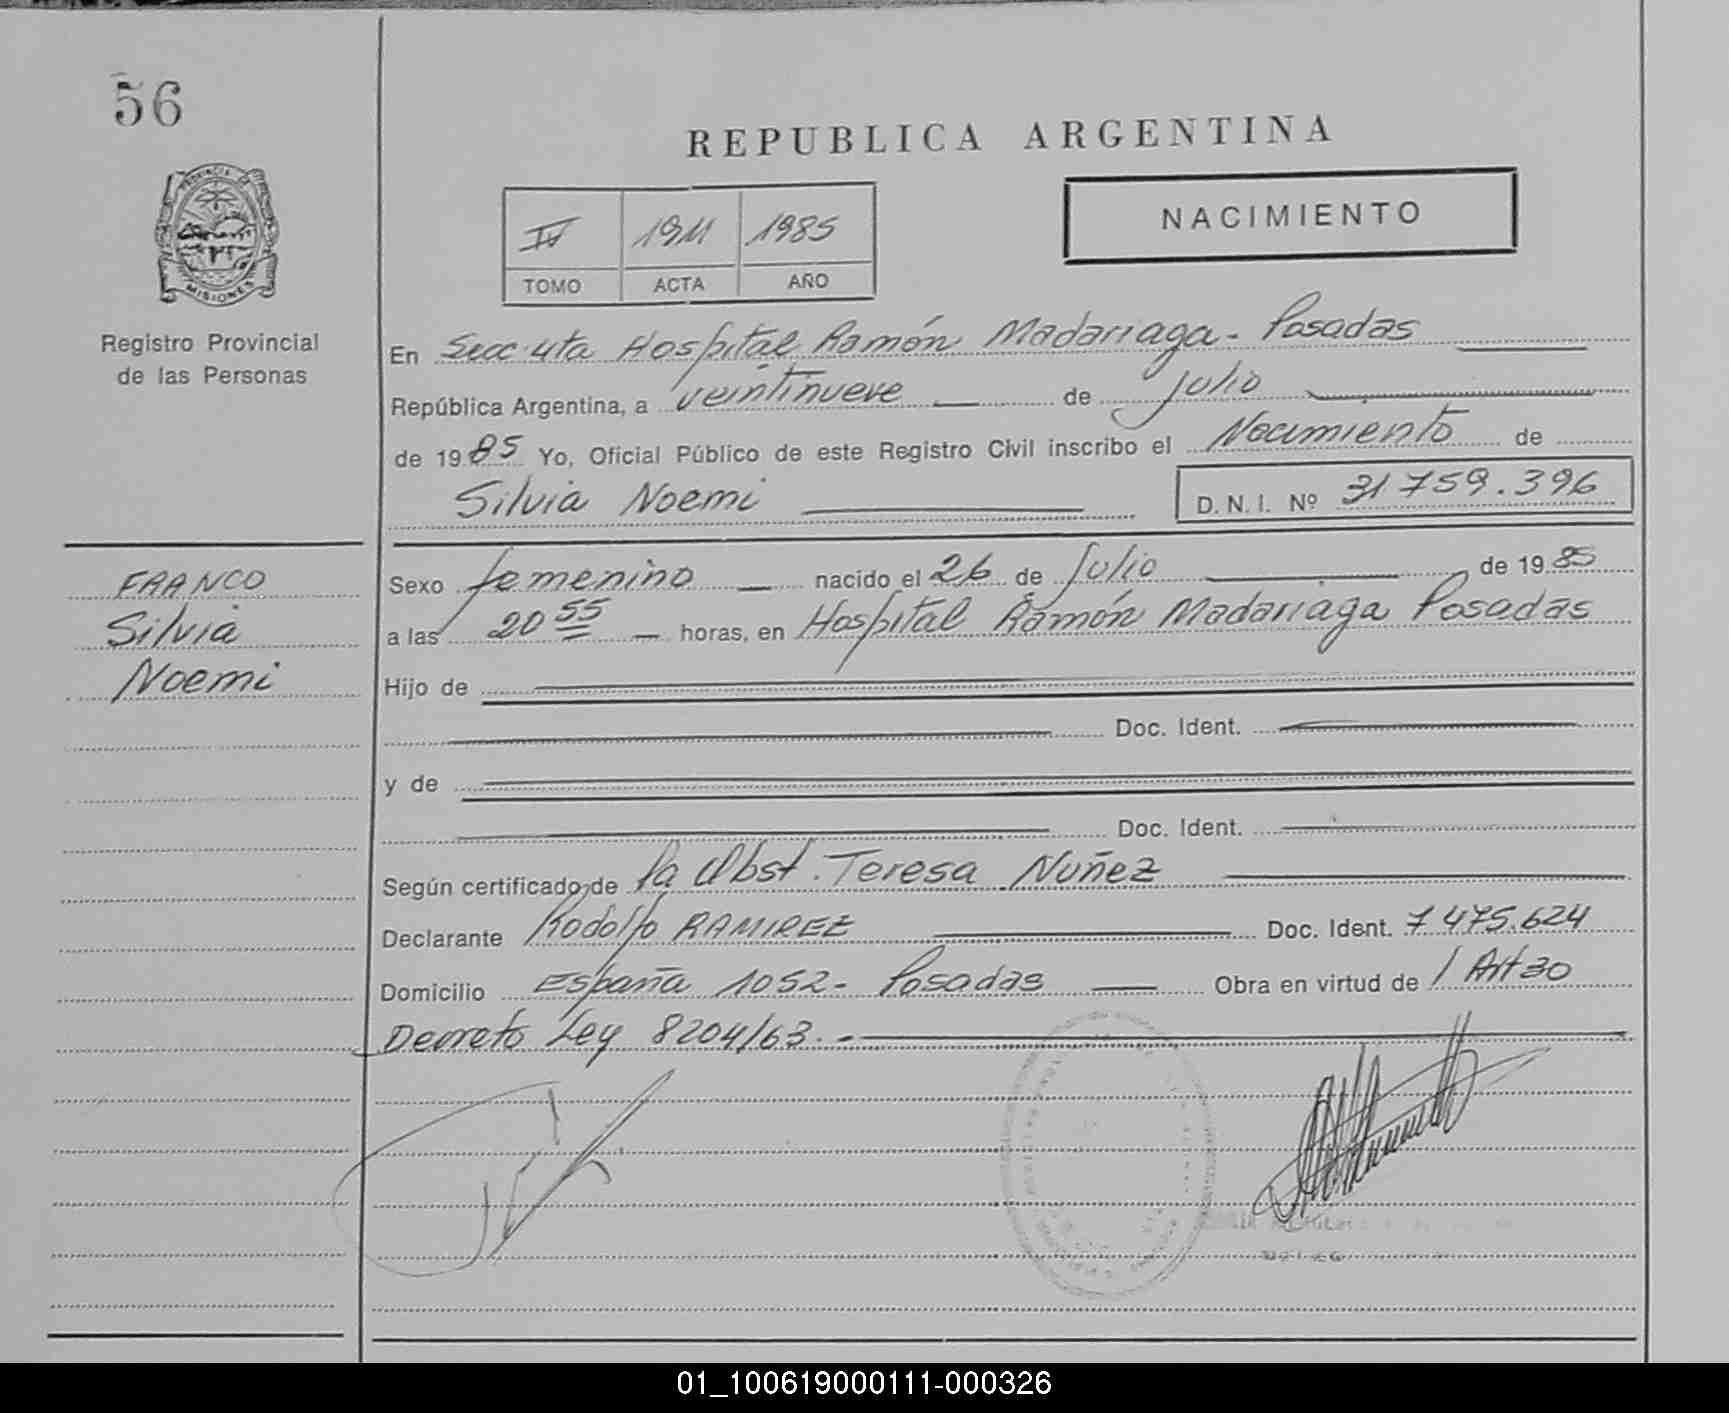 56
REPUBLICA ARGENTINA
NACIMIENTO
IV 1911 1985
TOMO ACTA AÑO
PROVINCIA DE
MISIONES
Registro Provincial
de las Personas
En Secc. 4ta Hospital Ramón Madariaga - Posadas
República Argentina, a veintinueve de Julio
de 1985 Yo, Oficial Público de este Registro Civil inscribo el Nacimiento de
Silvia Noemi
D. N. I. Nº 31 759.396
FRANCO
Silvia
Noemi
Sexo femenino nacido el 26 de Julio de 1985
a las 20 55 horas, en Hospital Ramón Madariaga Posadas
Hijo de
Doc. Ident.
y de
Doc. Ident.
Según certificado de la Obst. Teresa Nuñez
Declarante Rodolfo RAMIREZ Doc. Ident. 7 475.624
Domicilio España 1052 - Posadas Obra en virtud de l Art 30
Decreto Ley 8204/63. -
01_100619000111-000326